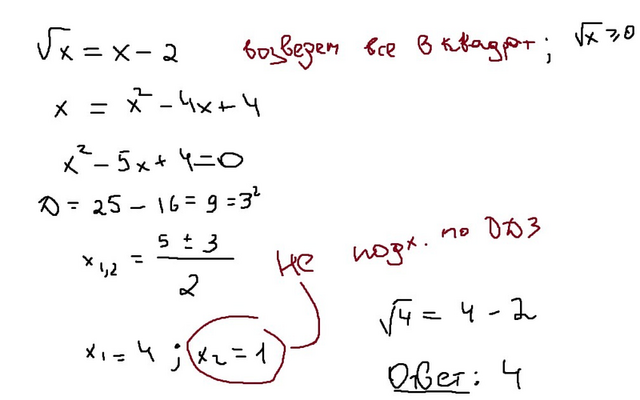 √x = x − 2 возведем все в квадрат; √x ≥ 0
x = x² − 4x + 4
x² − 5x + 4 = 0
D = 25 − 16 = 9 = 3²
x₁,₂ = (5 ± 3)/2
не подх. по ОДЗ
x₁ = 4 ; x₂ = 1
√4 = 4 − 2
Ответ: 4